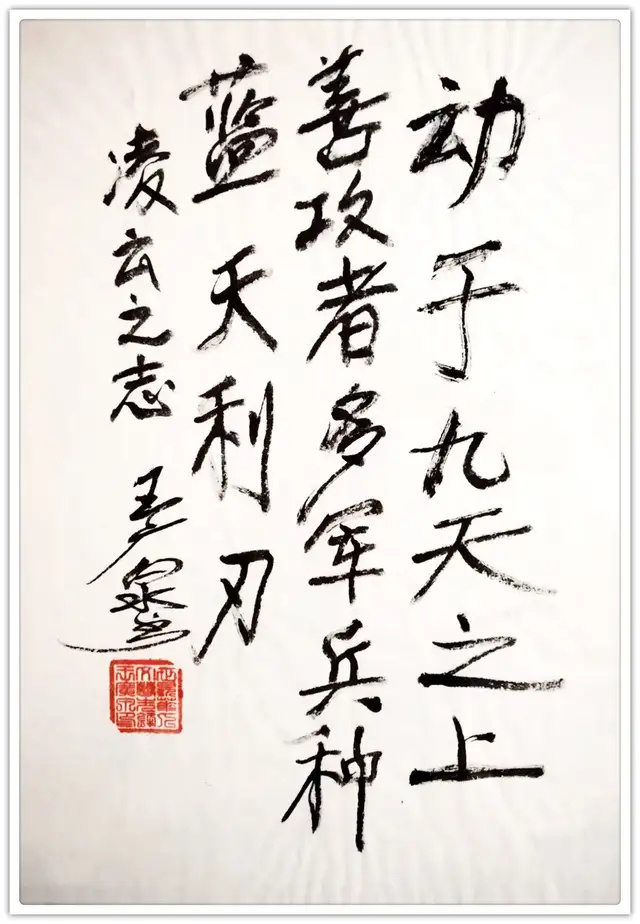 动于九天之上
善攻者多军兵种
蓝天利刃
凌云之志